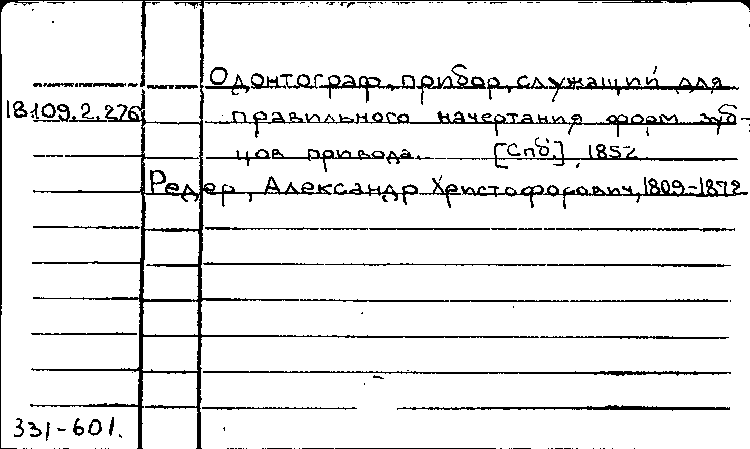 Одонтограф, прибор, служащий для
18.109.2.276 правильного начертания форм зуб-
цов привода. [Спб.], 1852
Редер, Александр Христофорович, 1809-1872
331-601.